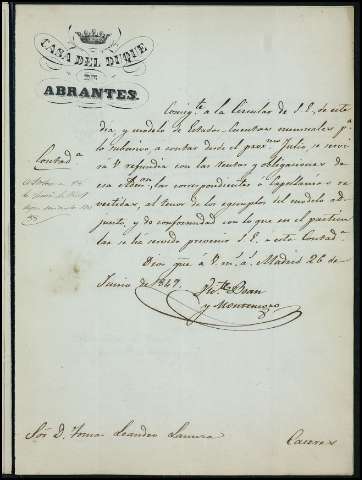 CASA DEL DUQUE
DE
ABRANTES.
Contad.ª
Consig.te a la Circular de S. E. de este
dia, y modelo de Estados Cuentas mensuales p.ª
lo subcesivo, a contar desde el pros.mo Julio, se servirá
V. refundir con las rentas y obligaciones de
esa Admon, las correspondientes á Capellanias
vertidas, al tenor de los ejemplos del modelo ad-
junto, y de conformidad con lo que en el particu-
lar se ha servido prevenir S. E. a esta Contad.ª
Dios gue. á V. m. a. Madrid 26 de
Junio de 1847.
y Montenegro
Sor. D. Tomas Leandro
Caceres